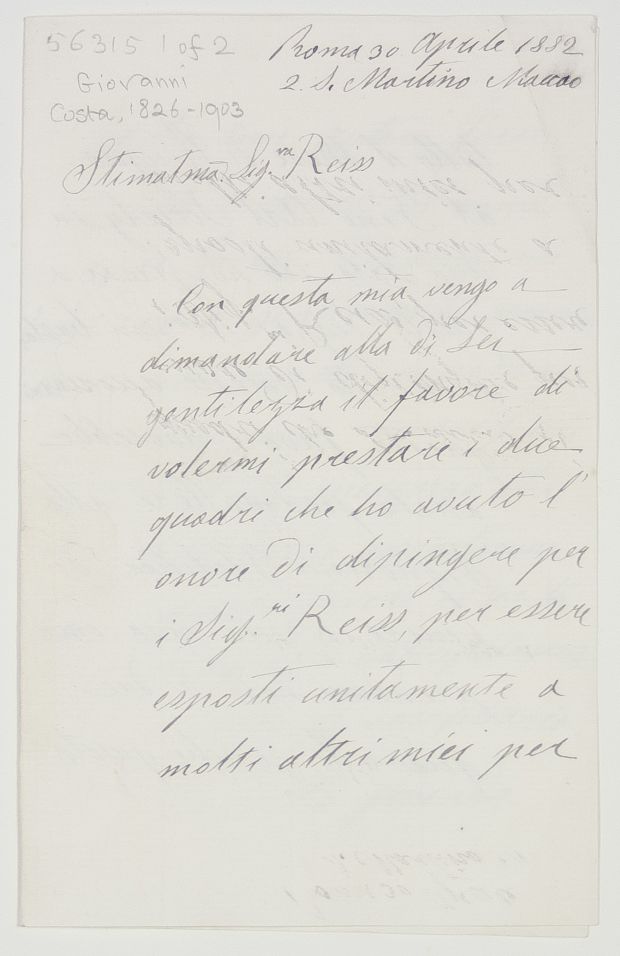 56315 1 of 2
Giovanni
Costa, 1826-1903
Roma 30 Aprile 1882
2. S. Martino Macao
Stimatma. Sig.ra Reiss
Con questa mia vengo a
dimandare alla di Lei
gentilezza il favore di
volermi prestare i due
quadri che ho avuto l'
onore di dipingere per
i Sig.ri Reiss, per essere
esposti unitamente a
molti altri miei per